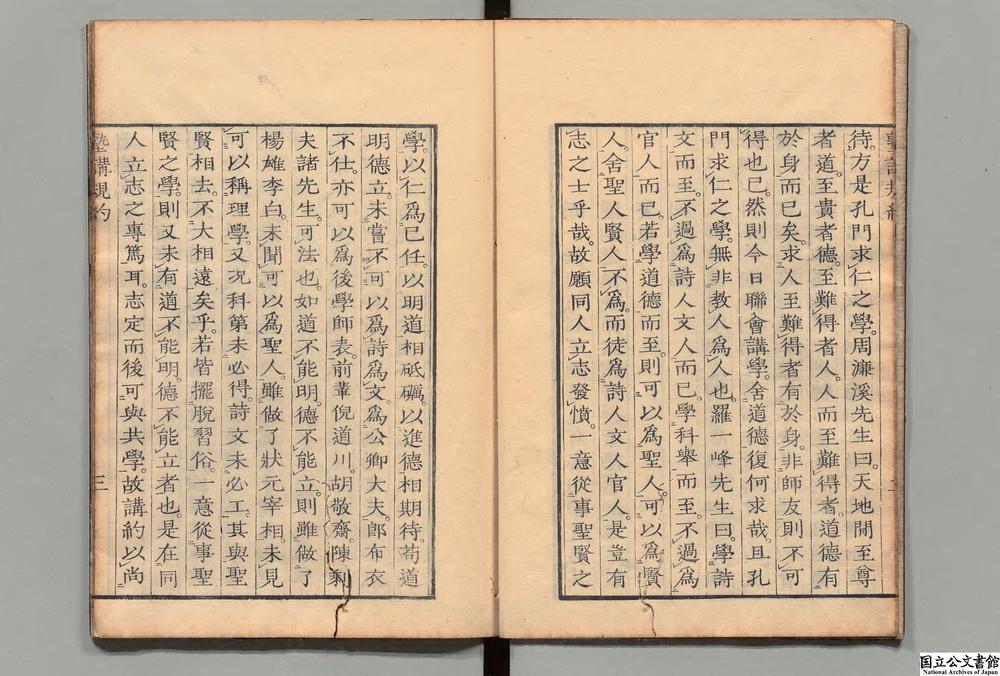 待。方是孔門求仁之學。周濂溪先生曰。天地閒至尊
者道。至貴者德。至難得者人。人而至難得者。道德有
於身而已矣。求人至難得者有於身。非師友則不可
得也已。然則今日聯會講學。舍道德復何求哉。且孔
門求仁之學。無非教人爲人也。羅一峰先生曰。學詩
文而至。不過爲詩人文人而已。學科舉而至。不過爲
官人而已。若學道德而至。則可以爲聖人。可以爲賢
人。舍聖人賢人不爲。而徒爲詩人文人官人。是豈有
志之士乎哉。故願同人立志發憤。一意從事聖賢之
學。以仁爲己任。以明道相砥礪。以進德相期待。苟道
明德立。未嘗不可以爲詩爲文。爲公卿大夫。郎布衣
不仕。亦可以爲後學師表。前輩倪道川。胡敬齋。陳剩
夫諸先生。可法也。如道不能明。德不能立。則雖做了
楊雄李白。未聞可以爲聖人。雖做了狀元宰相。未見
可以稱理學。又況科第未必得。詩文未必工。其與聖
賢相去。不大相遠矣乎。若皆擺脫習俗。一意從事聖
賢之學。則又未有道不能明。德不能立者也。是在同
人立志之專篤耳。志定而後可與共學。故講約以尚
塾講規約
三